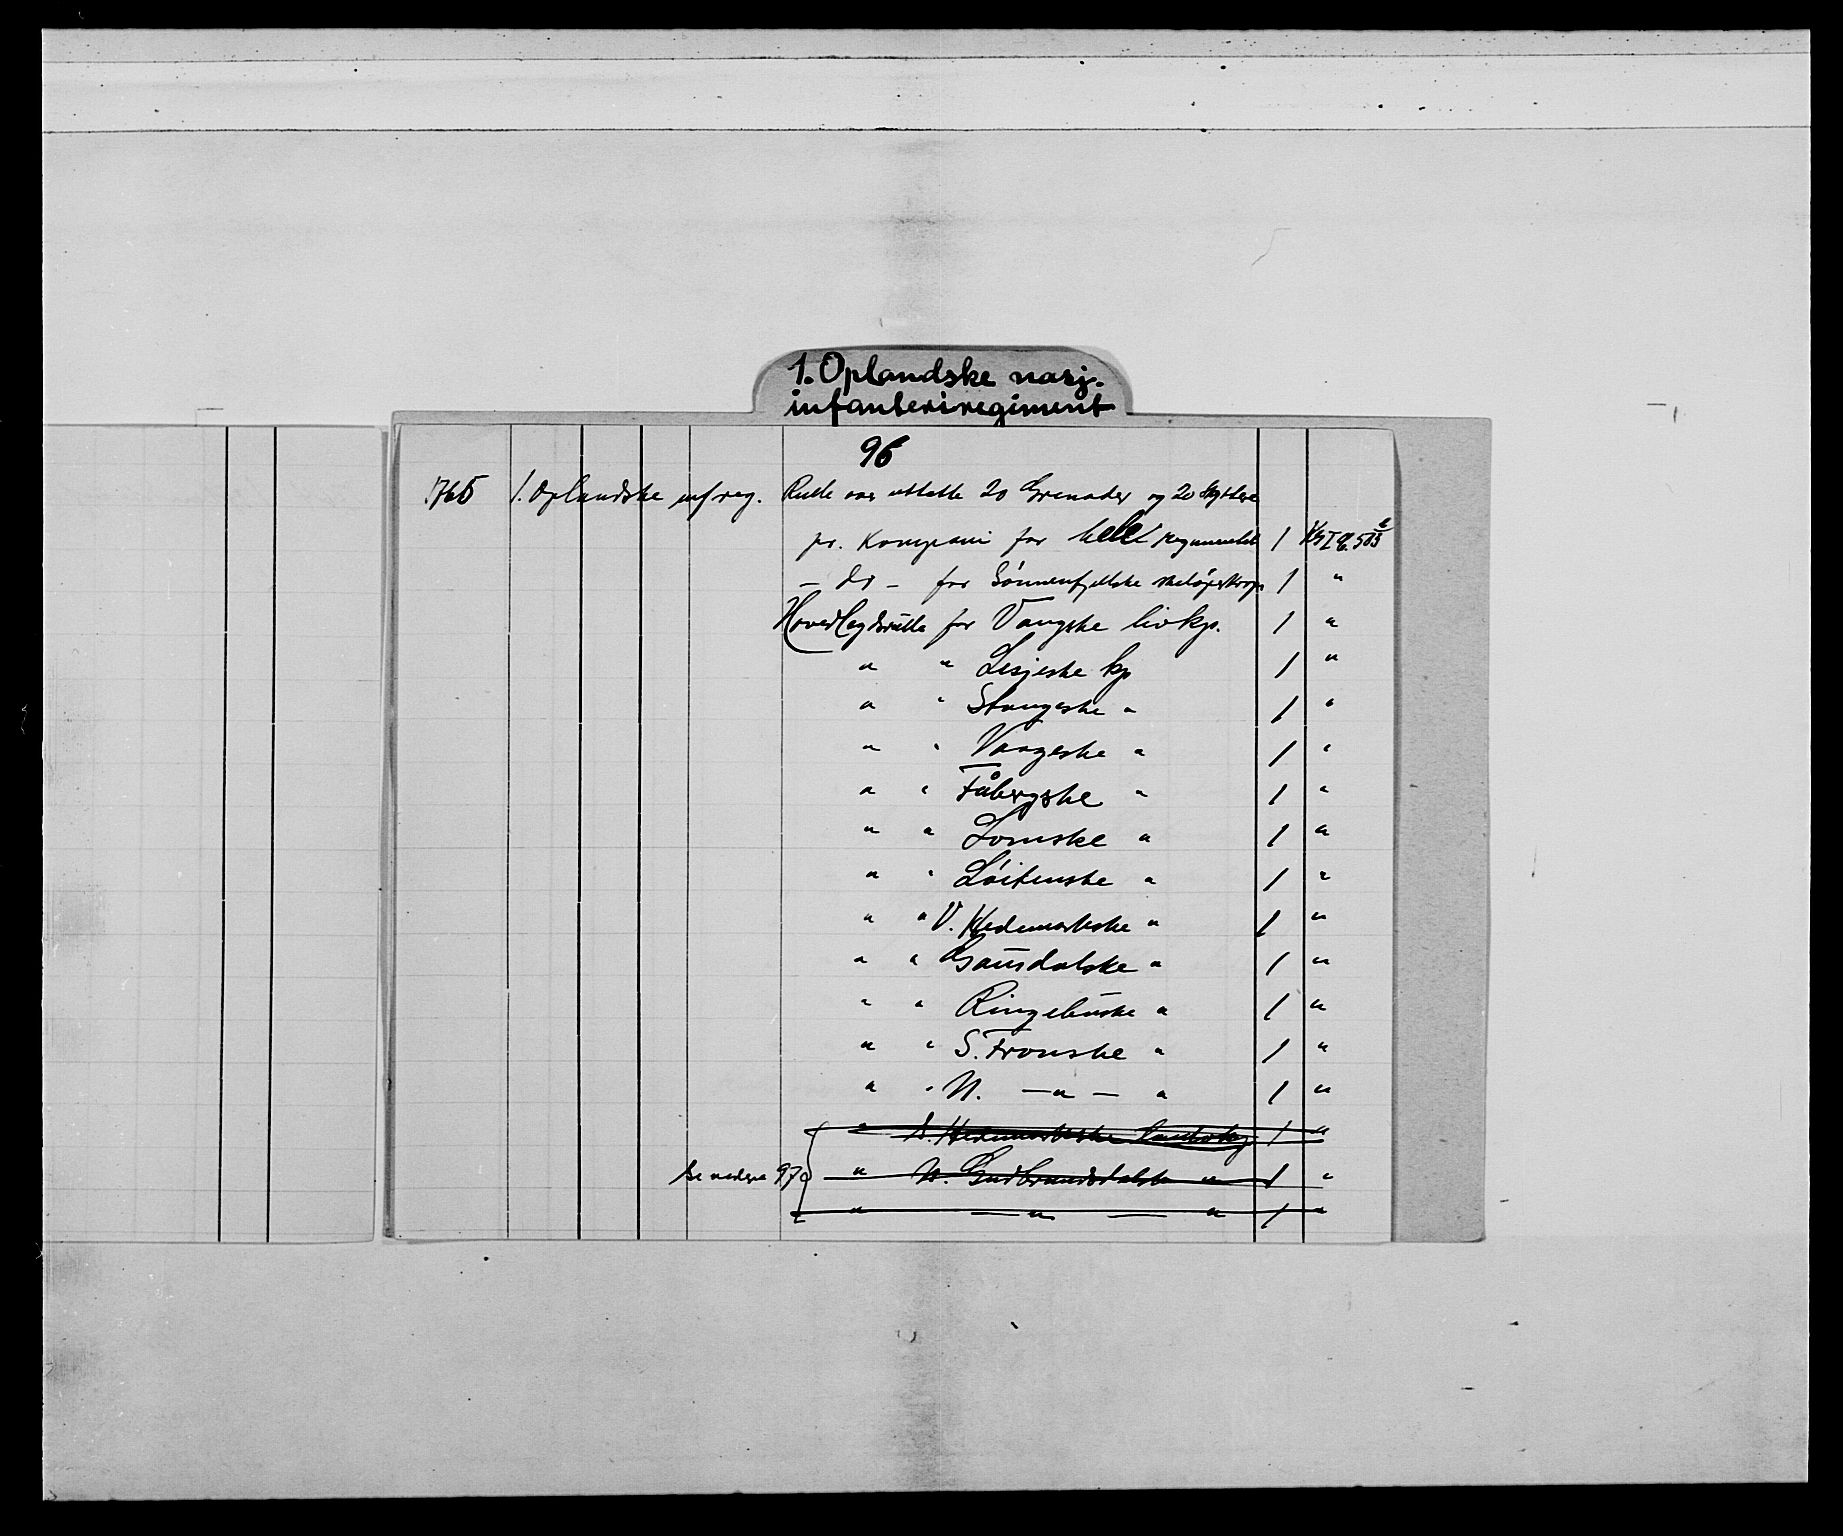 1. Oplandske nasj.
infanteriregiment
96
1765 1. Oplandske inf reg. Rulle over uttatte 20 Grenader og 20 Skyttere
pr. Kompani for hele regimentet 1
— do — for Sönnenfjellske skelöperkorps 1 "
Hovedlegdsrulle for Vangske livkp. 1 "
" " Lesjeske kp 1 "
" " Stangeske " 1 "
" " Vangeske " 1 "
" " Fåbergske " 1 "
" " Lomske " 1 "
" " Löitenske " 1 "
" " V. Hedemarkske " 1 "
" " Gausdalske " 1 "
" " Ringebuske " 1 "
" " S. Fronske " 1 "
" " N. — " — " 1 "
" S. Hedemarkske 1 "
Se nedenf 97 " N. Gudbrandsdalske " 1 "
" — " — " 1 "